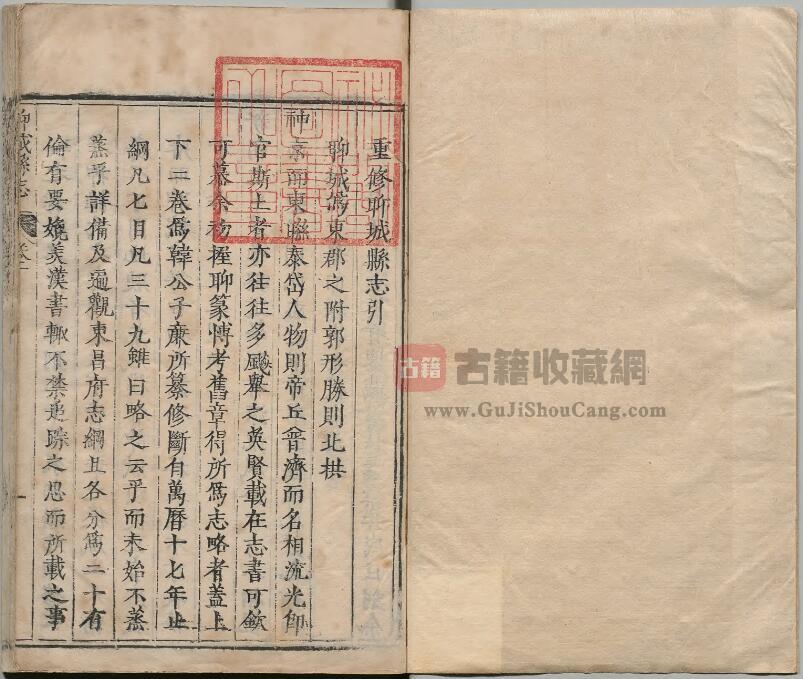 重修聊城縣志引
聊城爲東郡之附郭形勝則北拱
神京而東聯泰岱人物則帝丘普濟而名相流光卽
官斯土者亦往往多颺舉之英賢載在志書可欽
可慕余初握聊篆愽考舊章得所爲志略者蓋上
下二卷爲韓公子亷所纂修斷自萬曆十七年止
綱凡七目凡三十九雖曰略之云乎而未始不蒸
蒸乎詳備及遍觀東昌府志綱且各分爲二十有
倫有要媲美漢書輙不禁追踪之思而所載之事
聊城縣志
卷一
一
古籍
古籍收藏網
www.GuJiShouCang.com